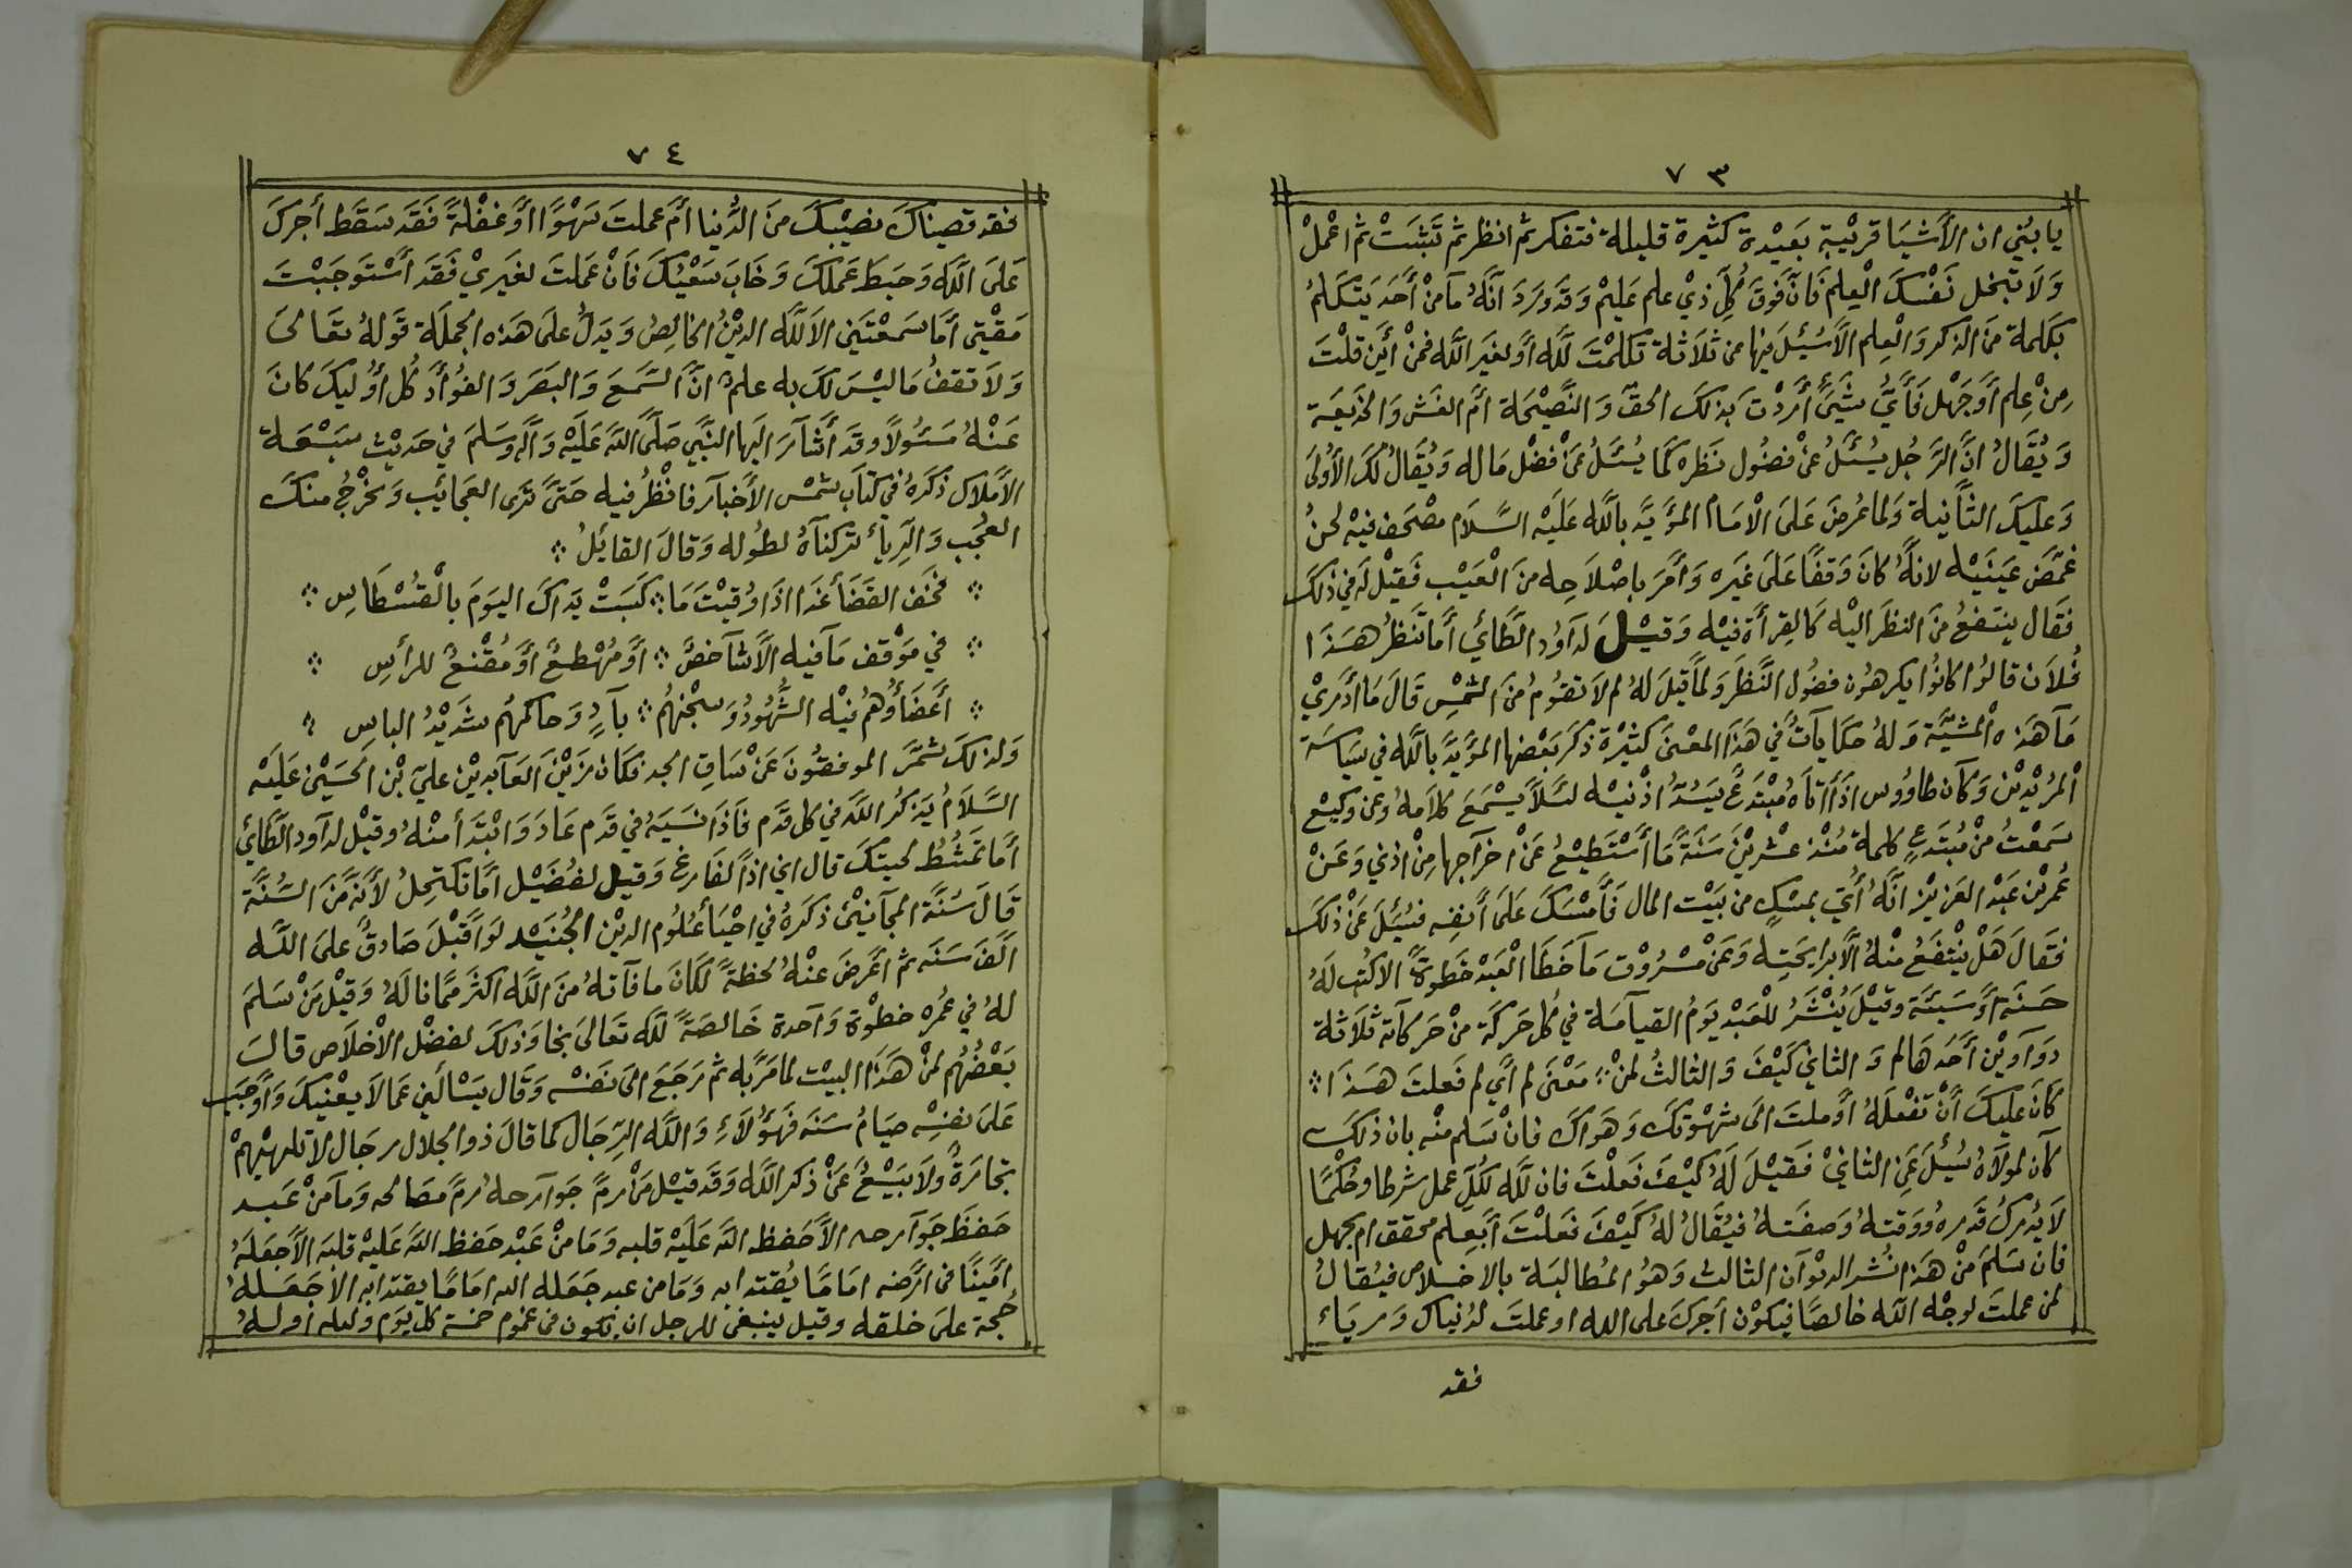 ٧٣
يا بني ان الأشيا قريبة بعيدة كثيرة قليلة فتفكر ثم انظر ثم تثبت ثم اعمل
ولا تبخل نفسك العلم فان فوق كل ذي علم عليم وقد ورد انه ما من أحد يتكلم
بكلمة من الذكر والعلم الا سئل فيها من ثلاثة تكلمت لله أو لغير الله فمن أين قلت
من علم أو جهل فأي شيء أردت بذلك الحق والنصيحة أم الغش والخديعة
ويقال ان الرجل يسئل عن فضول نظره كما يسئل عن فضل ماله ويقال لك الأولى
وعليك الثانية ولما عرض على الامام المؤيد بالله عليه السلام مصحف فيه لحن
غمض عينيه لانه كان وقفا على غيره وأمر باصلاحه من العيب فقيل له في ذلك
فقال ينتفع من النظر اليه كالقرأة فيه وقيل لداود الطائي أما تنظر هذا
فلان قالوا كانوا يكرهون فضول النظر ولما قيل له لم لا تقوم من الشمس قال ما أدري
ما هذه المشية وله حكايات في هذا المعنى كثيرة ذكر بعضها المؤيد بالله في سياسة
المريدين وكان طاووس اذا أتاه مبتدع يسد اذنيه لئلا يسمع كلامه وعن وكيع
سمعت من مبتدع كلمة منذ عشرين سنة ما أستطيع عن اخراجها من اذني وعن
عمر بن عبد العزيز انه أتي بمسك من بيت المال فأمسك على أنفه فسئل عن ذلك
فقال هل ينتفع منه الا برايحته وعن مسروق ما خطا العبد خطوة الا كتب له
حسنة أو سيئة وقيل ينشر للعبد يوم القيامة في كل حركة من حركاته ثلاثة
دواوين أحدها لم والثاني كيف والثالث لمن معنى لم أي لم فعلت هذا
كان عليك أن تفعله أو ملت الى شهوتك وهواك فان سلم منه بان ذلك
كان لمولاه سئل عن الثاني فقيل له كيف فعلت فان لله لكل عمل شرطا وحكما
لا يدرك قدره ووقته وصفته فيقال له كيف فعلت أبعلم محقق ام بجهل
فان سلم من هذا نشر الديوان الثالث وهو المطالبة بالاخلاص فيقال
لمن عملت لوجه الله خالصا فيكون أجرك على الله او عملت لدنياك ورياء
فقد
٧٤
فقد قضيناك نصيبك من الدنيا أم عملت سهوا أو غفلة فقد سقط أجرك
على الله وحبط عملك وخاب سعيك فان عملت لغيري فقد أستوجبت
مقتي أما سمعتني الا لله الدين الخالص ويدل على هذه الجملة قوله تعالى
ولا تقف ما ليس لك به علم ان السمع والبصر والفوأد كل أوليك كان
عنه مسئولا وقد أشار اليها النبي صلى الله عليه وآله وسلم في حديث سبعة
الأملاك ذكره في كتاب شمس الأخبار فانظر فيه حتى ترى العجائب وتخرج منك
العجب والرياء تركناه لطوله وقال القائل
فخف القضأ غدا اذا وقيت ما كسبت يداك اليوم بالقسطاس
في موقف ما فيه الا شاخص أو مهطع أو مقنع للرأس
أعضاؤهم فيه الشهود وسجنهم باد وحاكمهم شديد الباس
ولذلك شمر الموفقون عن ساق الجد فكان زين العابدين علي بن الحسين عليه
السلام يذكر الله في كل قدم فاذا نسيه في قدم عاد وابتدأ منه وقيل لداود الطائي
أما تمشط لحيتك قال اني اذا لفارغ وقيل لفضيل أما تكتحل لأنه من السنة
قال سنة المجانين ذكره في احيا علوم الدين الجنيد لو اقبل صادق على الله
الف سنه ثم اعرض عنه لحظة لكان ما فاته من الله اكثر مما ناله وقيل من سلم
له في عمره خطوة واحدة خالصة لله تعالى نجا وذلك لفضل الاخلاص قال
بعضهم لمن هذا البيت لما مر به ثم رجع الى نفسه وقال يسالني عما لا يعنيك وأوجب
على نفسه صيام سنه فهؤلاء والله الرجال كما قال ذو الجلال رجال لا تلهيهم
تجارة ولا بيع عن ذكر الله وقد قيل من رم جوارحه رم مصالحه وما من عبد
حفظ جوارحه الا حفظ الله عليه قلبه وما من عبد حفظ الله عليه قلبه الا جعله
امينا فى ارضه اماما يقتدا به وما من عبد جعله الله اماما يقتدا به الا جعله
حجة على خلقه وقيل ينبغى للرجل ان تكون فى غموم خمسة كل يوم وليله أوله